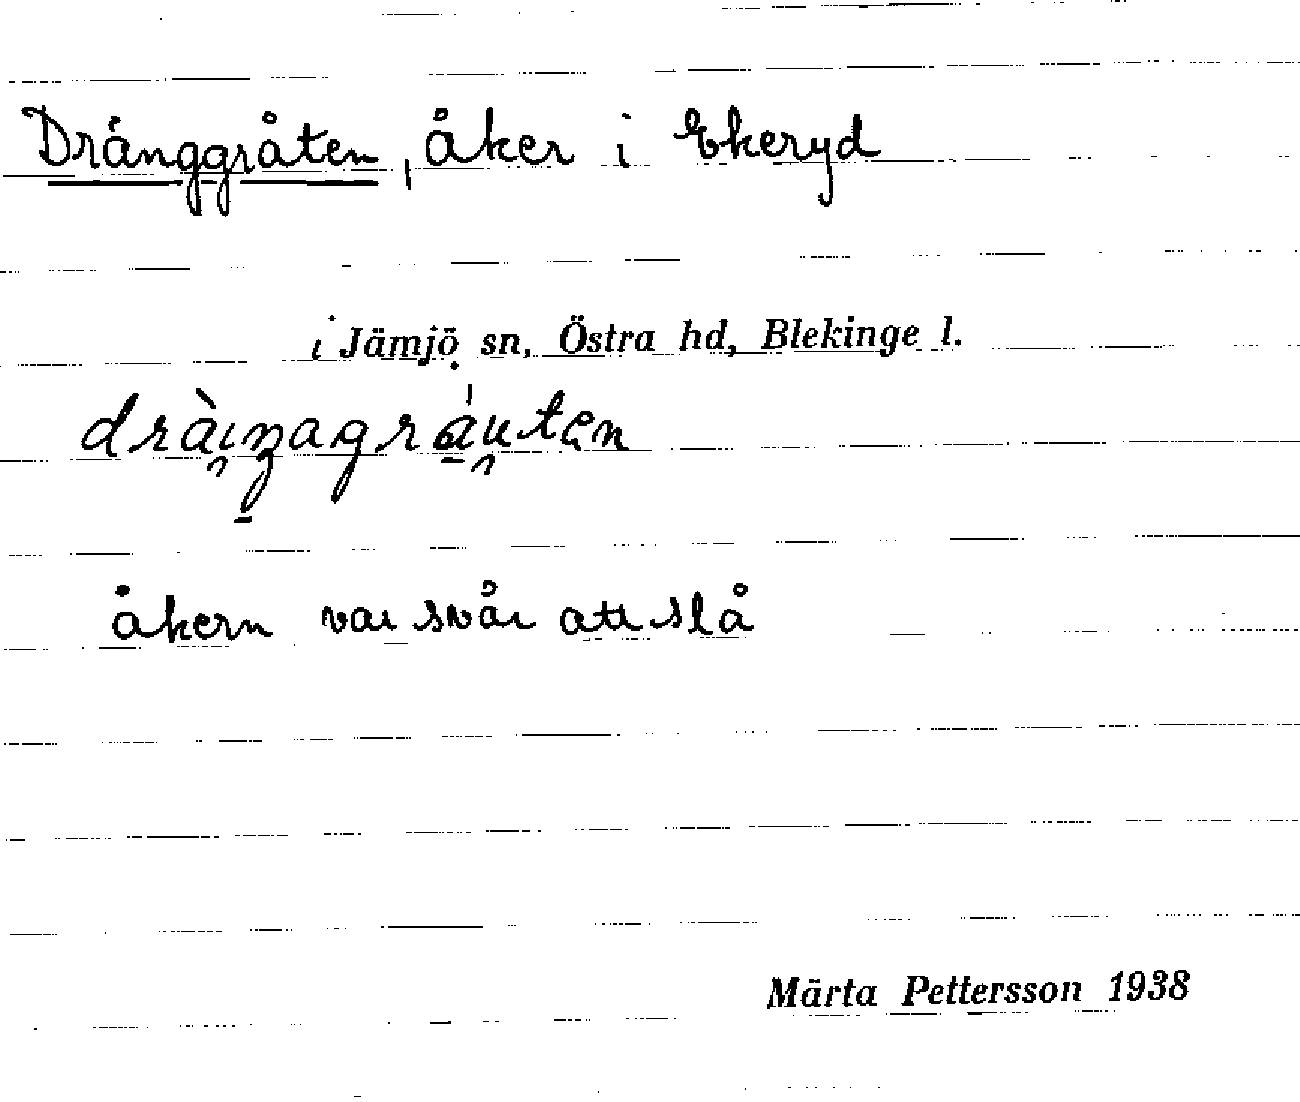 Dränggråten, åker i Ekeryd
i Jämjö sn, Östra hd, Blekinge l.
åkern var svår att slå
Märta Pettersson 1938